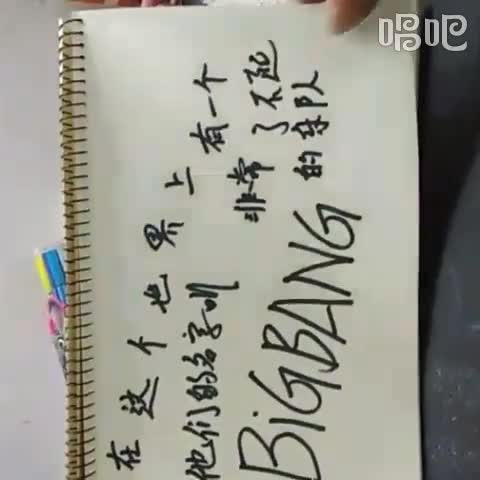 在这个世界上有一个
非常了不起
的乐队
他们的名字叫
BiGBANG
唱吧